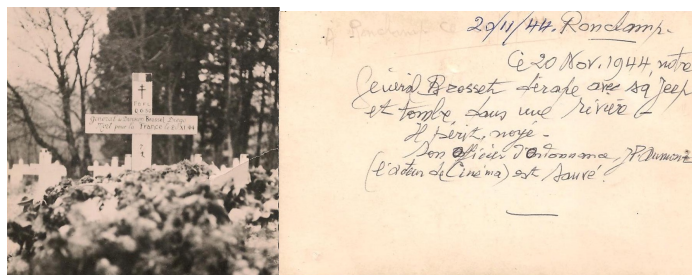 Général de Division Brosset Diego
Mort pour la France le 20.XI.44
20/11/44. Ronchamp.
Ce 20 Nov. 1944, notre
Général Brosset dérape avec sa Jeep
et tombe dans une rivière
Il périt, noyé.
Son officier d'ordonnance, JP. Aumont
(l'acteur de Cinéma) est sauvé.